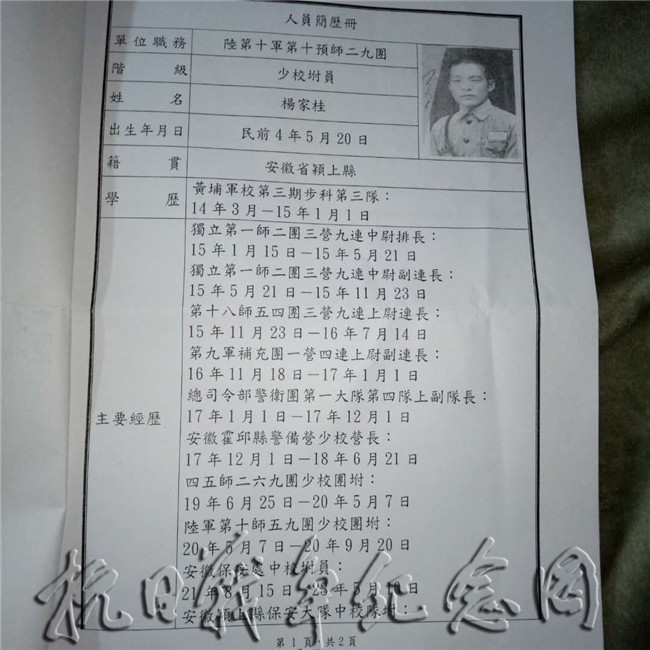 人員簡歷冊
單位職務 陸第十軍第十預師二九團
階級 少校坿員
姓名 楊家桂
出生年月日 民前4年5月20日
籍貫 安徽省穎上縣
學歷 黃埔軍校第三期步科第三隊：
14年3月－15年1月1日
主要經歷
獨立第一師二團三營九連中尉排長：
15年1月15日－15年5月21日
獨立第一師二團三營九連中尉副連長：
15年5月21日－15年11月23日
第十八師五四團三營九連上尉連長：
15年11月23日－16年7月14日
第九軍補充團一營四連上尉副連長：
16年11月18日－17年1月1日
總司令部警衛團第一大隊第四隊上副隊長：
17年1月1日－17年12月1日
安徽霍邱縣警備營少校營長：
17年12月1日－18年6月21日
四五師二六九團少校團坿：
19年6月25日－20年5月7日
陸軍第十師五九團少校團坿：
20年5月7日－20年9月20日
安徽保安處中校坿員：
21年8月15日－23年5月10日
安徽穎上縣保安大隊中校隊坿：
第1頁，共2頁
抗日战争纪念网